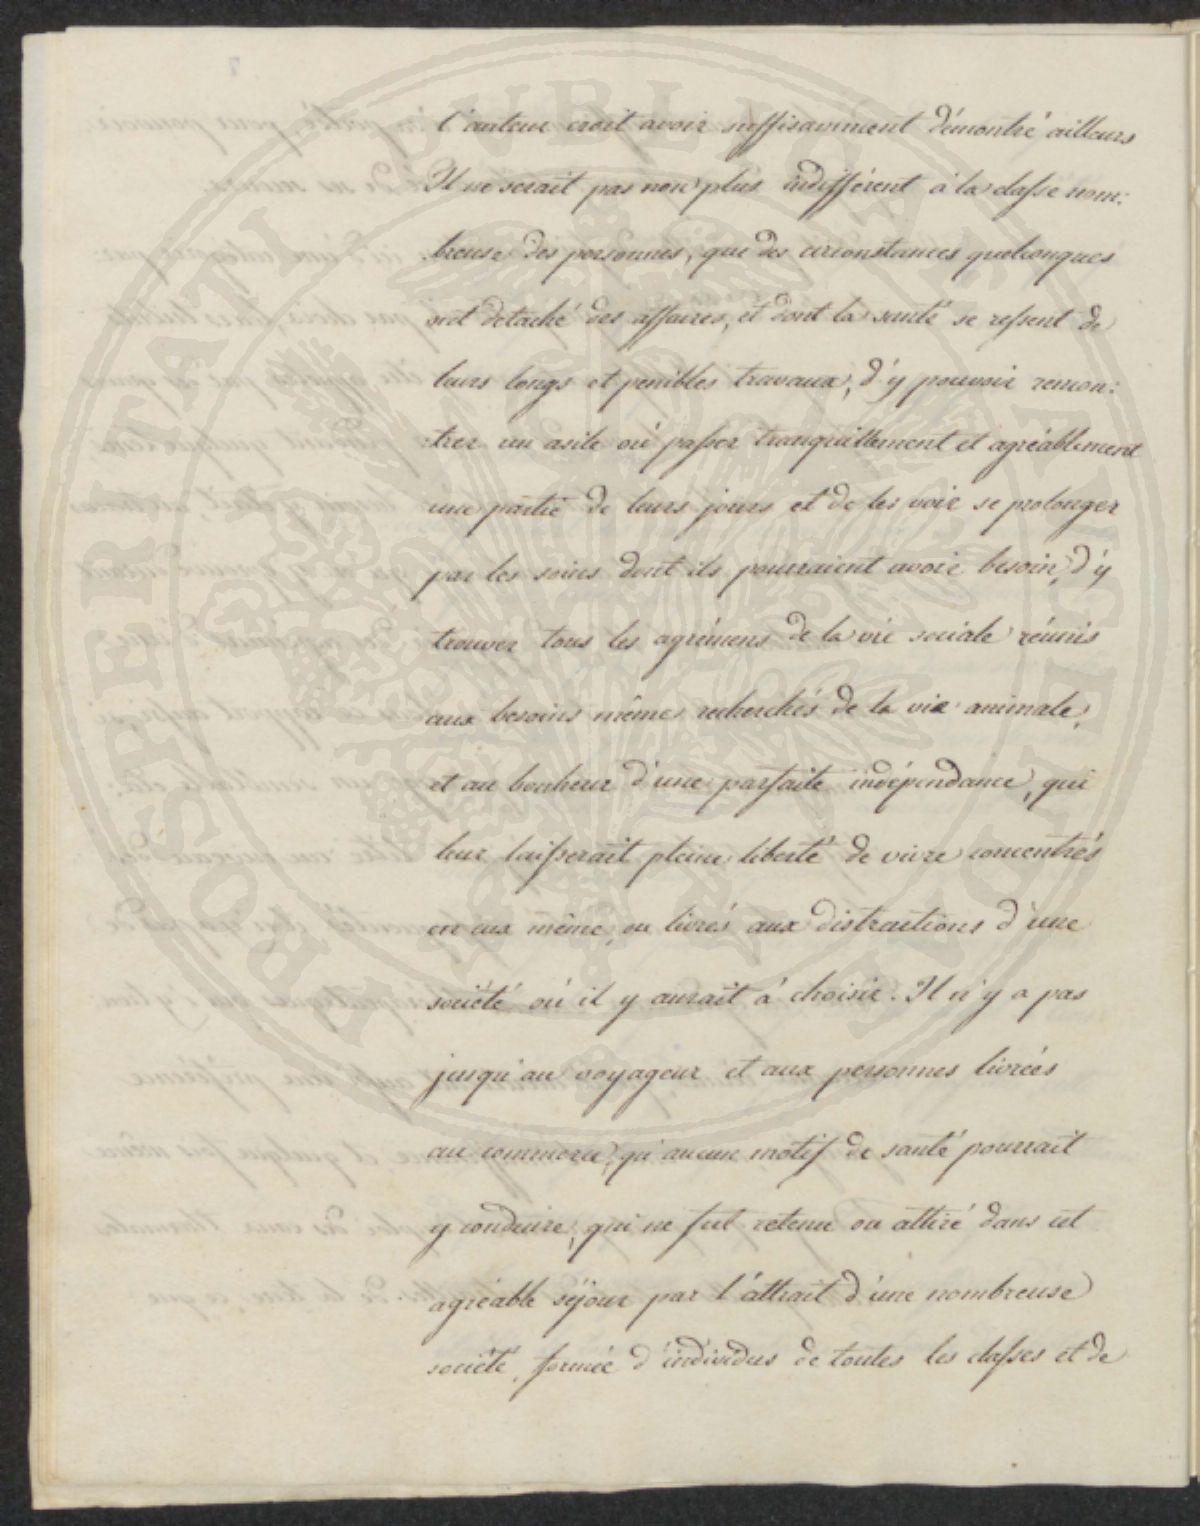 l'auteur croit avoir suffisamment démontré ailleurs
Il ne serait pas non plus indifférent à la classe nom:
:breuse des personnes, que des circonstances quelconques
ont detaché des affaires, et dont la santé se ressent de
leurs longs et penibles travaux, d'y pouvoir rencon:
:trer un asile où passer tranquillement et agréablement
une partie de leurs jours et de les voir se prolonger
par les soins dont ils pourraient avoir besoin, d'y
trouver tous les agrémens de la vie sociale réunis
aux besoins même recherchés de la vie animale,
et au bonheur d'une parfaite indépendance, qui
leur laisserait pleine liberté de vivre concentrés
en eux même, ou livrés aux distractions d'une
société où il y aurait à choisir. Il n'y a pas
jusqu'au voyageur et aux personnes livrées
au commerce, qu'aucun motif de santé pourrait
y conduire, qui ne fut retenu ou attiré dans cet
agréable séjour par l'attrait d'une nombreuse
société, formée d'individus de toutes les classes et de
PROSPERITATI PUBLICAE AUGENDAE